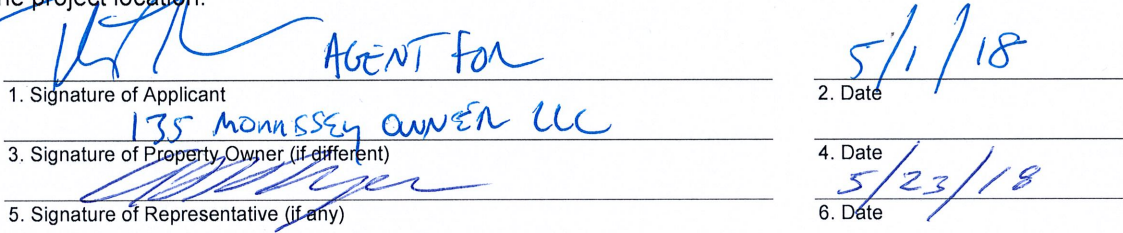 the project location.
AGENT FOR 5/1/18
1. Signature of Applicant 2. Date
135 MORRISSEY OWNER LLC
3. Signature of Property Owner (if different) 4. Date
5/23/18
5. Signature of Representative (if any) 6. Date